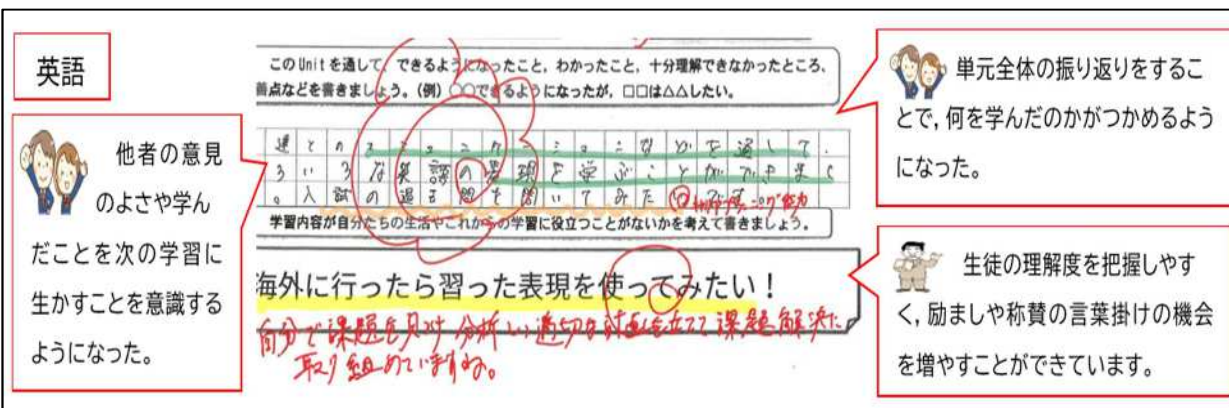 英語
他者の意見
のよさや学ん
だことを次の学習に
生かすことを意識する
ようになった。
このUnitを通して、できるようになったこと，わかったこと，十分理解できなかったところ，
善点などを書きましょう。(例) ○○できるようになったが，□□は△△したい。
達とのコミュニケーションなどを通して、
ろいろな英語の表現を学ぶことができまし
。入試の過去問も解いてみた
学習内容が自分たちの生活やこれからの学習に役立つことがないかを考えて書きましょう。
海外に行ったら習った表現を使ってみたい！
自分で課題を見つけ分析し、適切な計画を立てて課題解決に
取り組めていますね。
単元全体の振り返りをするこ
とで，何を学んだのかがつかめるよう
になった。
生徒の理解度を把握しやす
く，励ましや称賛の言葉掛けの機会
を増やすことができています。